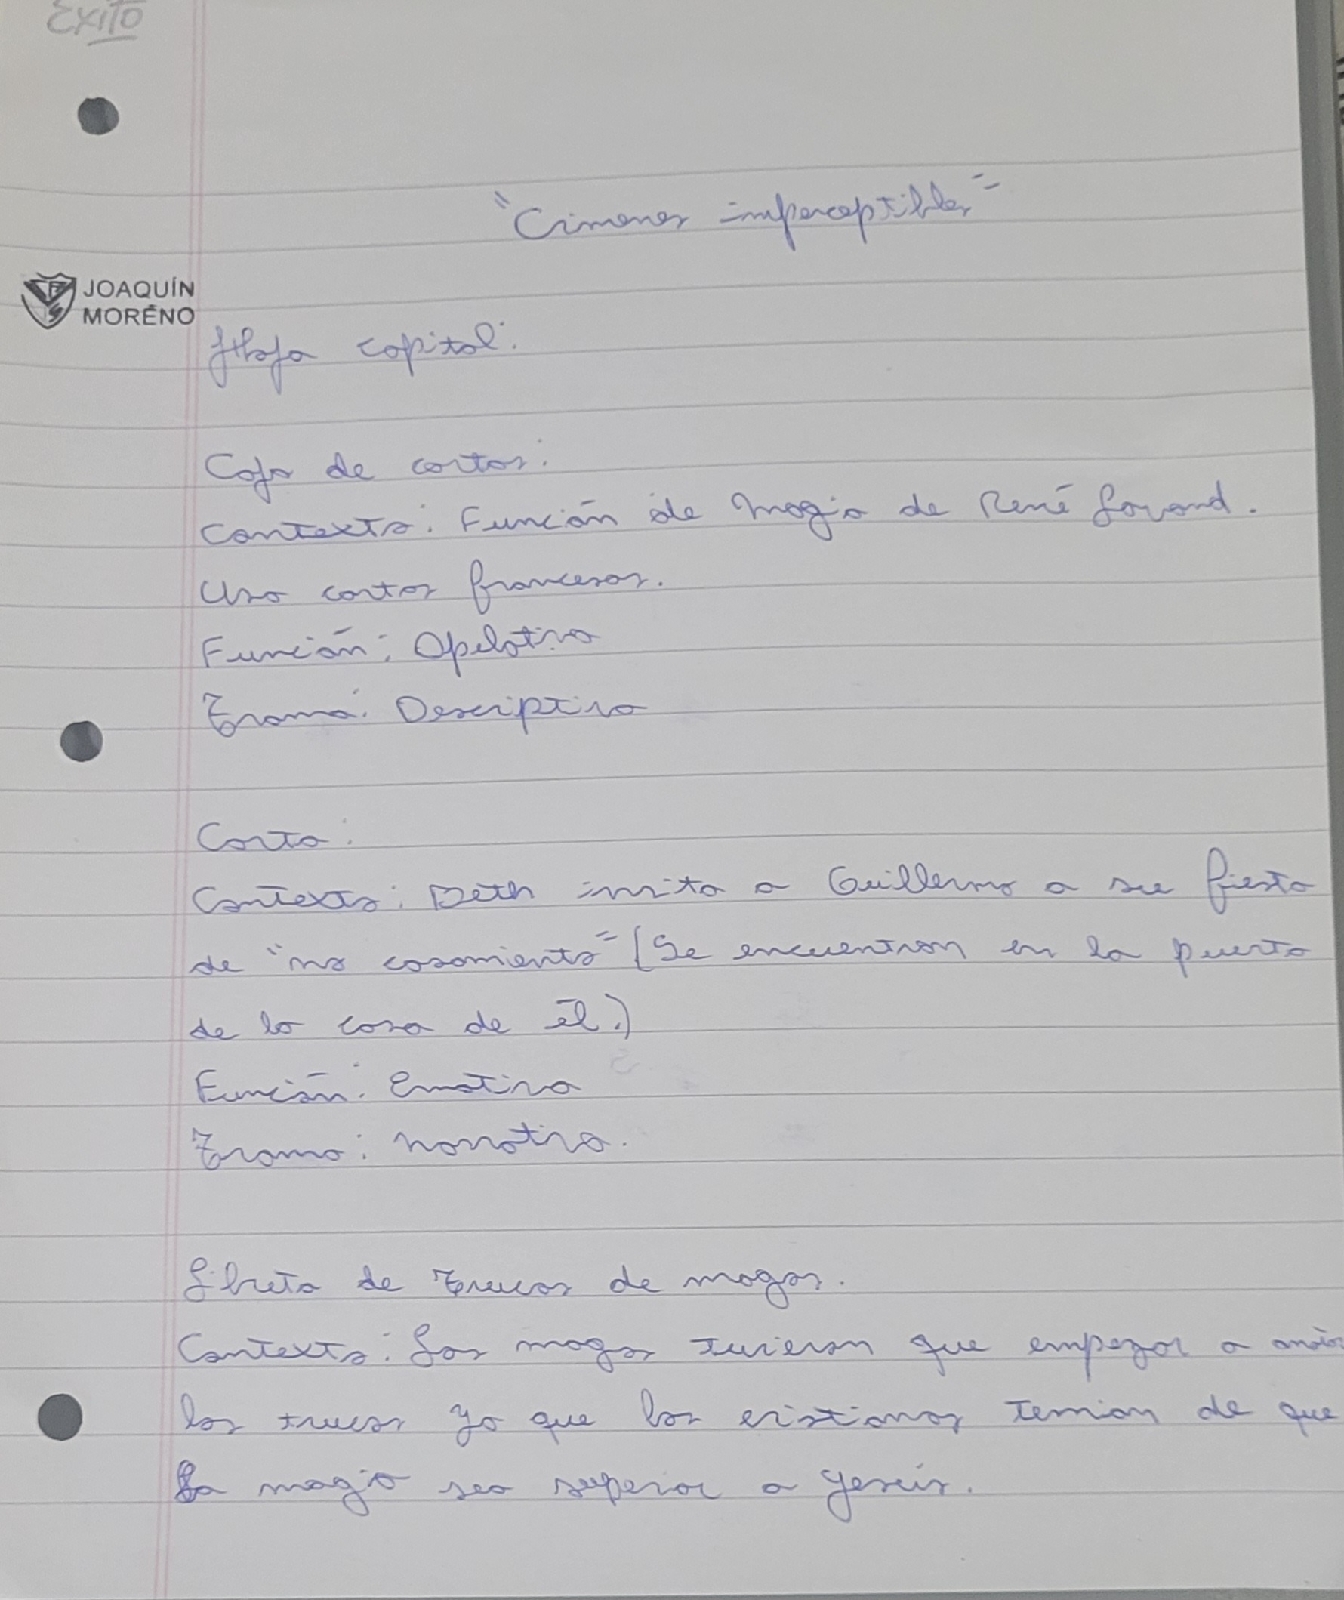 EXITO
"Crimenes imperceptibles"
JOAQUÍN
MORENO
Hoja capital:
Caja de cartas:
Contexto: Función de magia de René Lavand.
Usa cartas francesas.
Función: Apelativa
Trama: Descriptiva
Carta:
Contexto: Beth invita a Guillermo a su fiesta
de "no casamiento" (Se encuentran en la puerta
de la casa de él.)
Función: Emotiva
Trama: Narrativa.
Libreta de trucos de magos.
Contexto: Los magos tuvieron que empezar a
los trucos ya que los cristianos temian de que
La magia sea superior a Jesús.